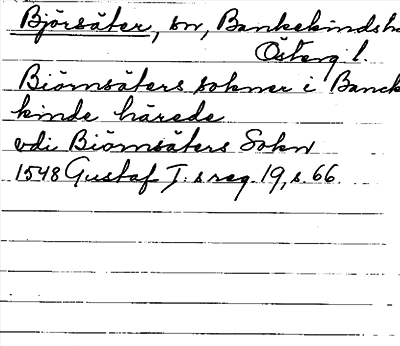 Björsäter, sn, Bankekindsh
Österg. l.
Biörnsäters sokner i Banck
kinde härede
vdi Biörnsäters Sokn
1548 Gustaf I:s reg. 19, s. 66.